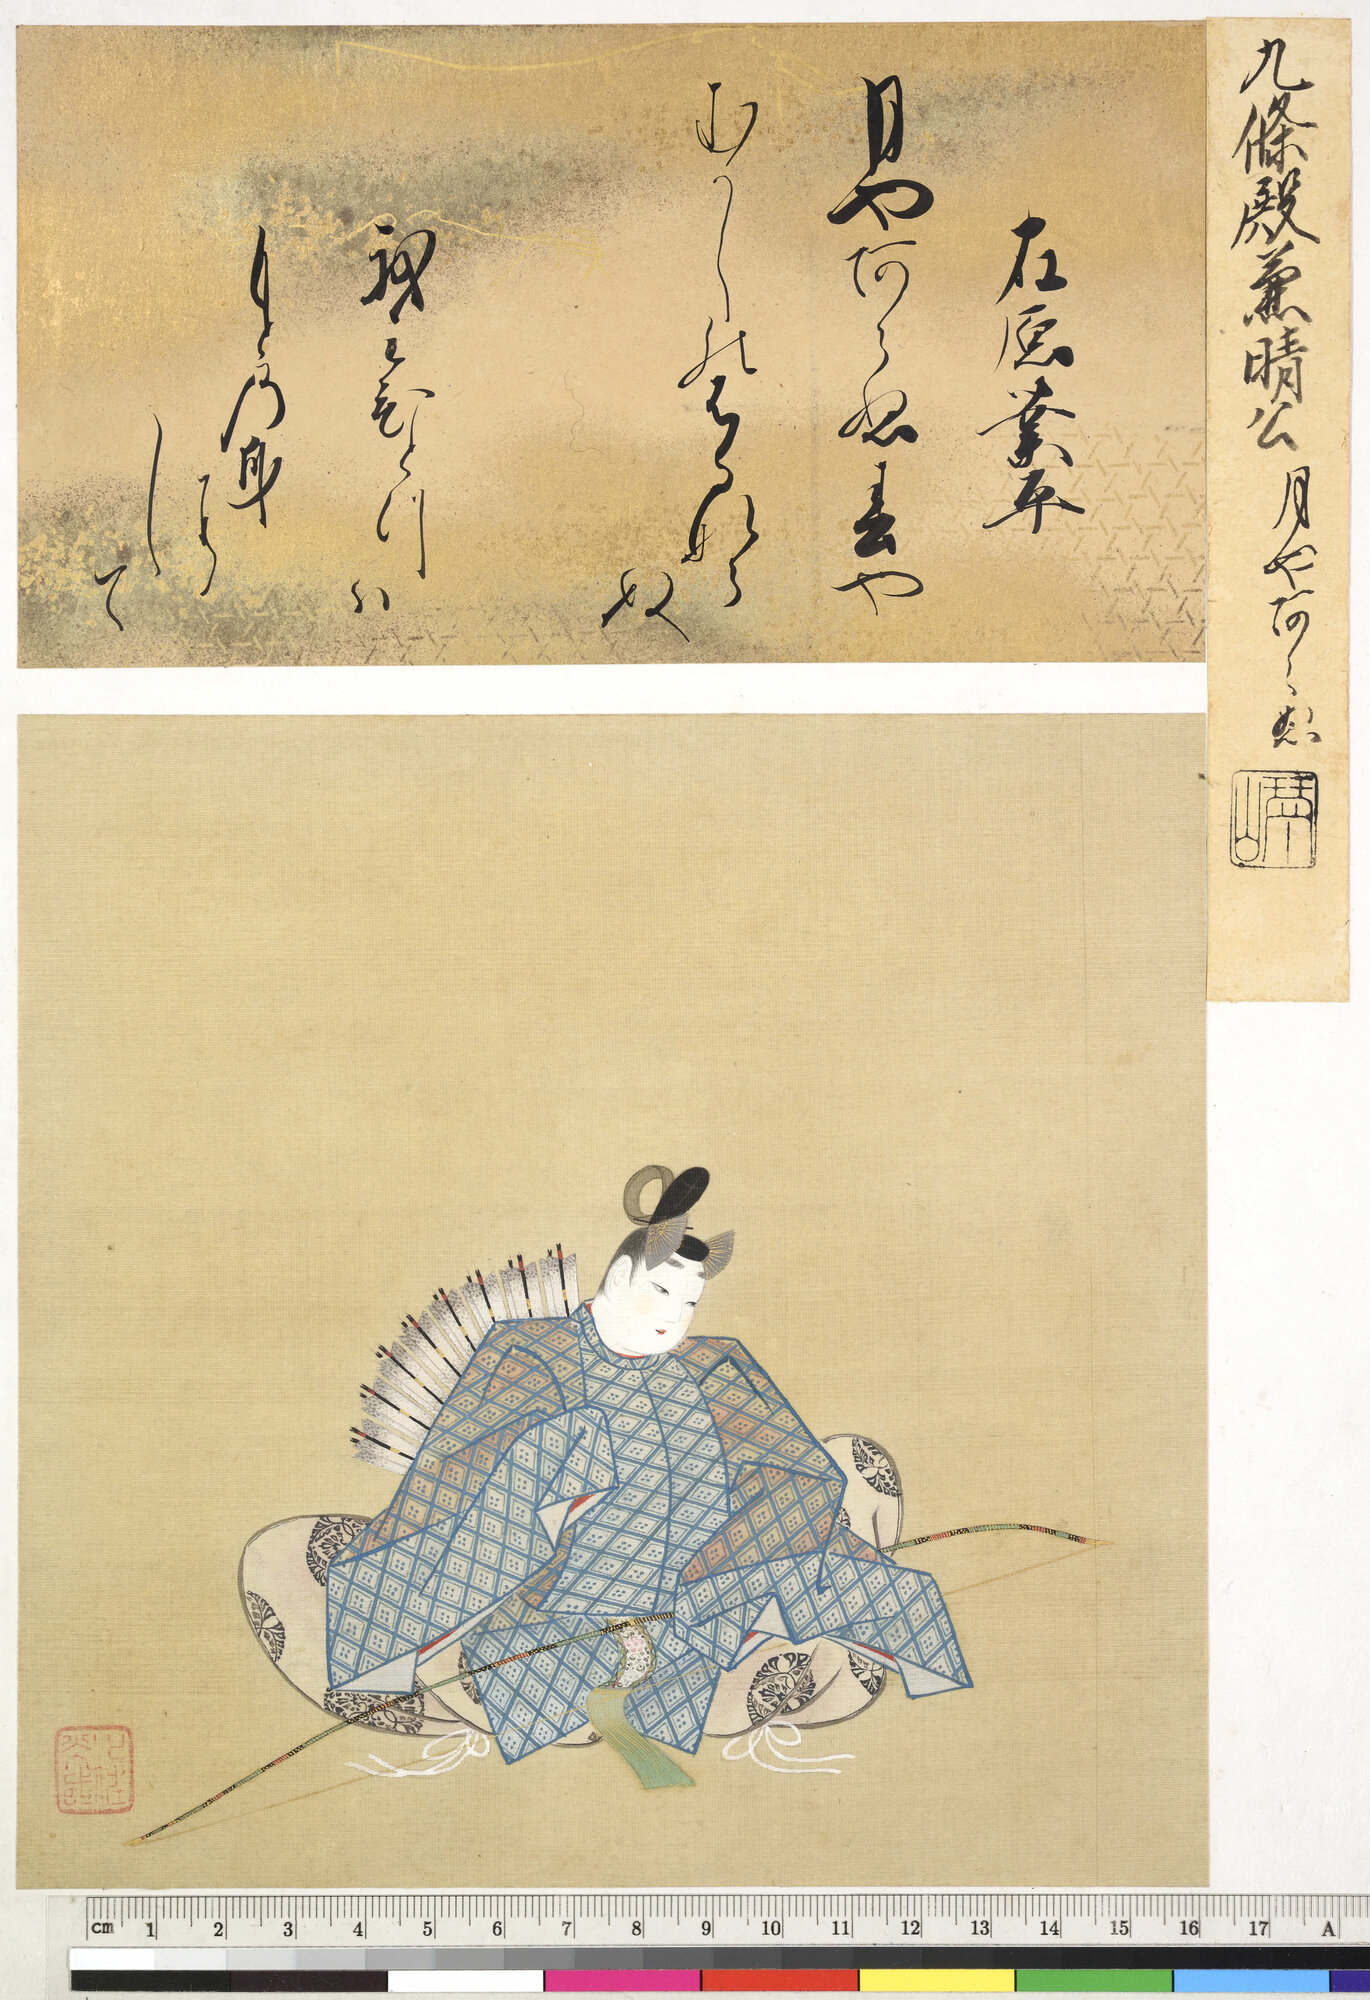 九條殿兼晴公 月や阿らぬ
琴山
在原業平
月や阿らぬ春や
むかしの春なら
ぬ
我身ひとつハ
もとの身
にし
て
cm 1 2 3 4 5 6 7 8 9 10 11 12 13 14 15 16 17 A